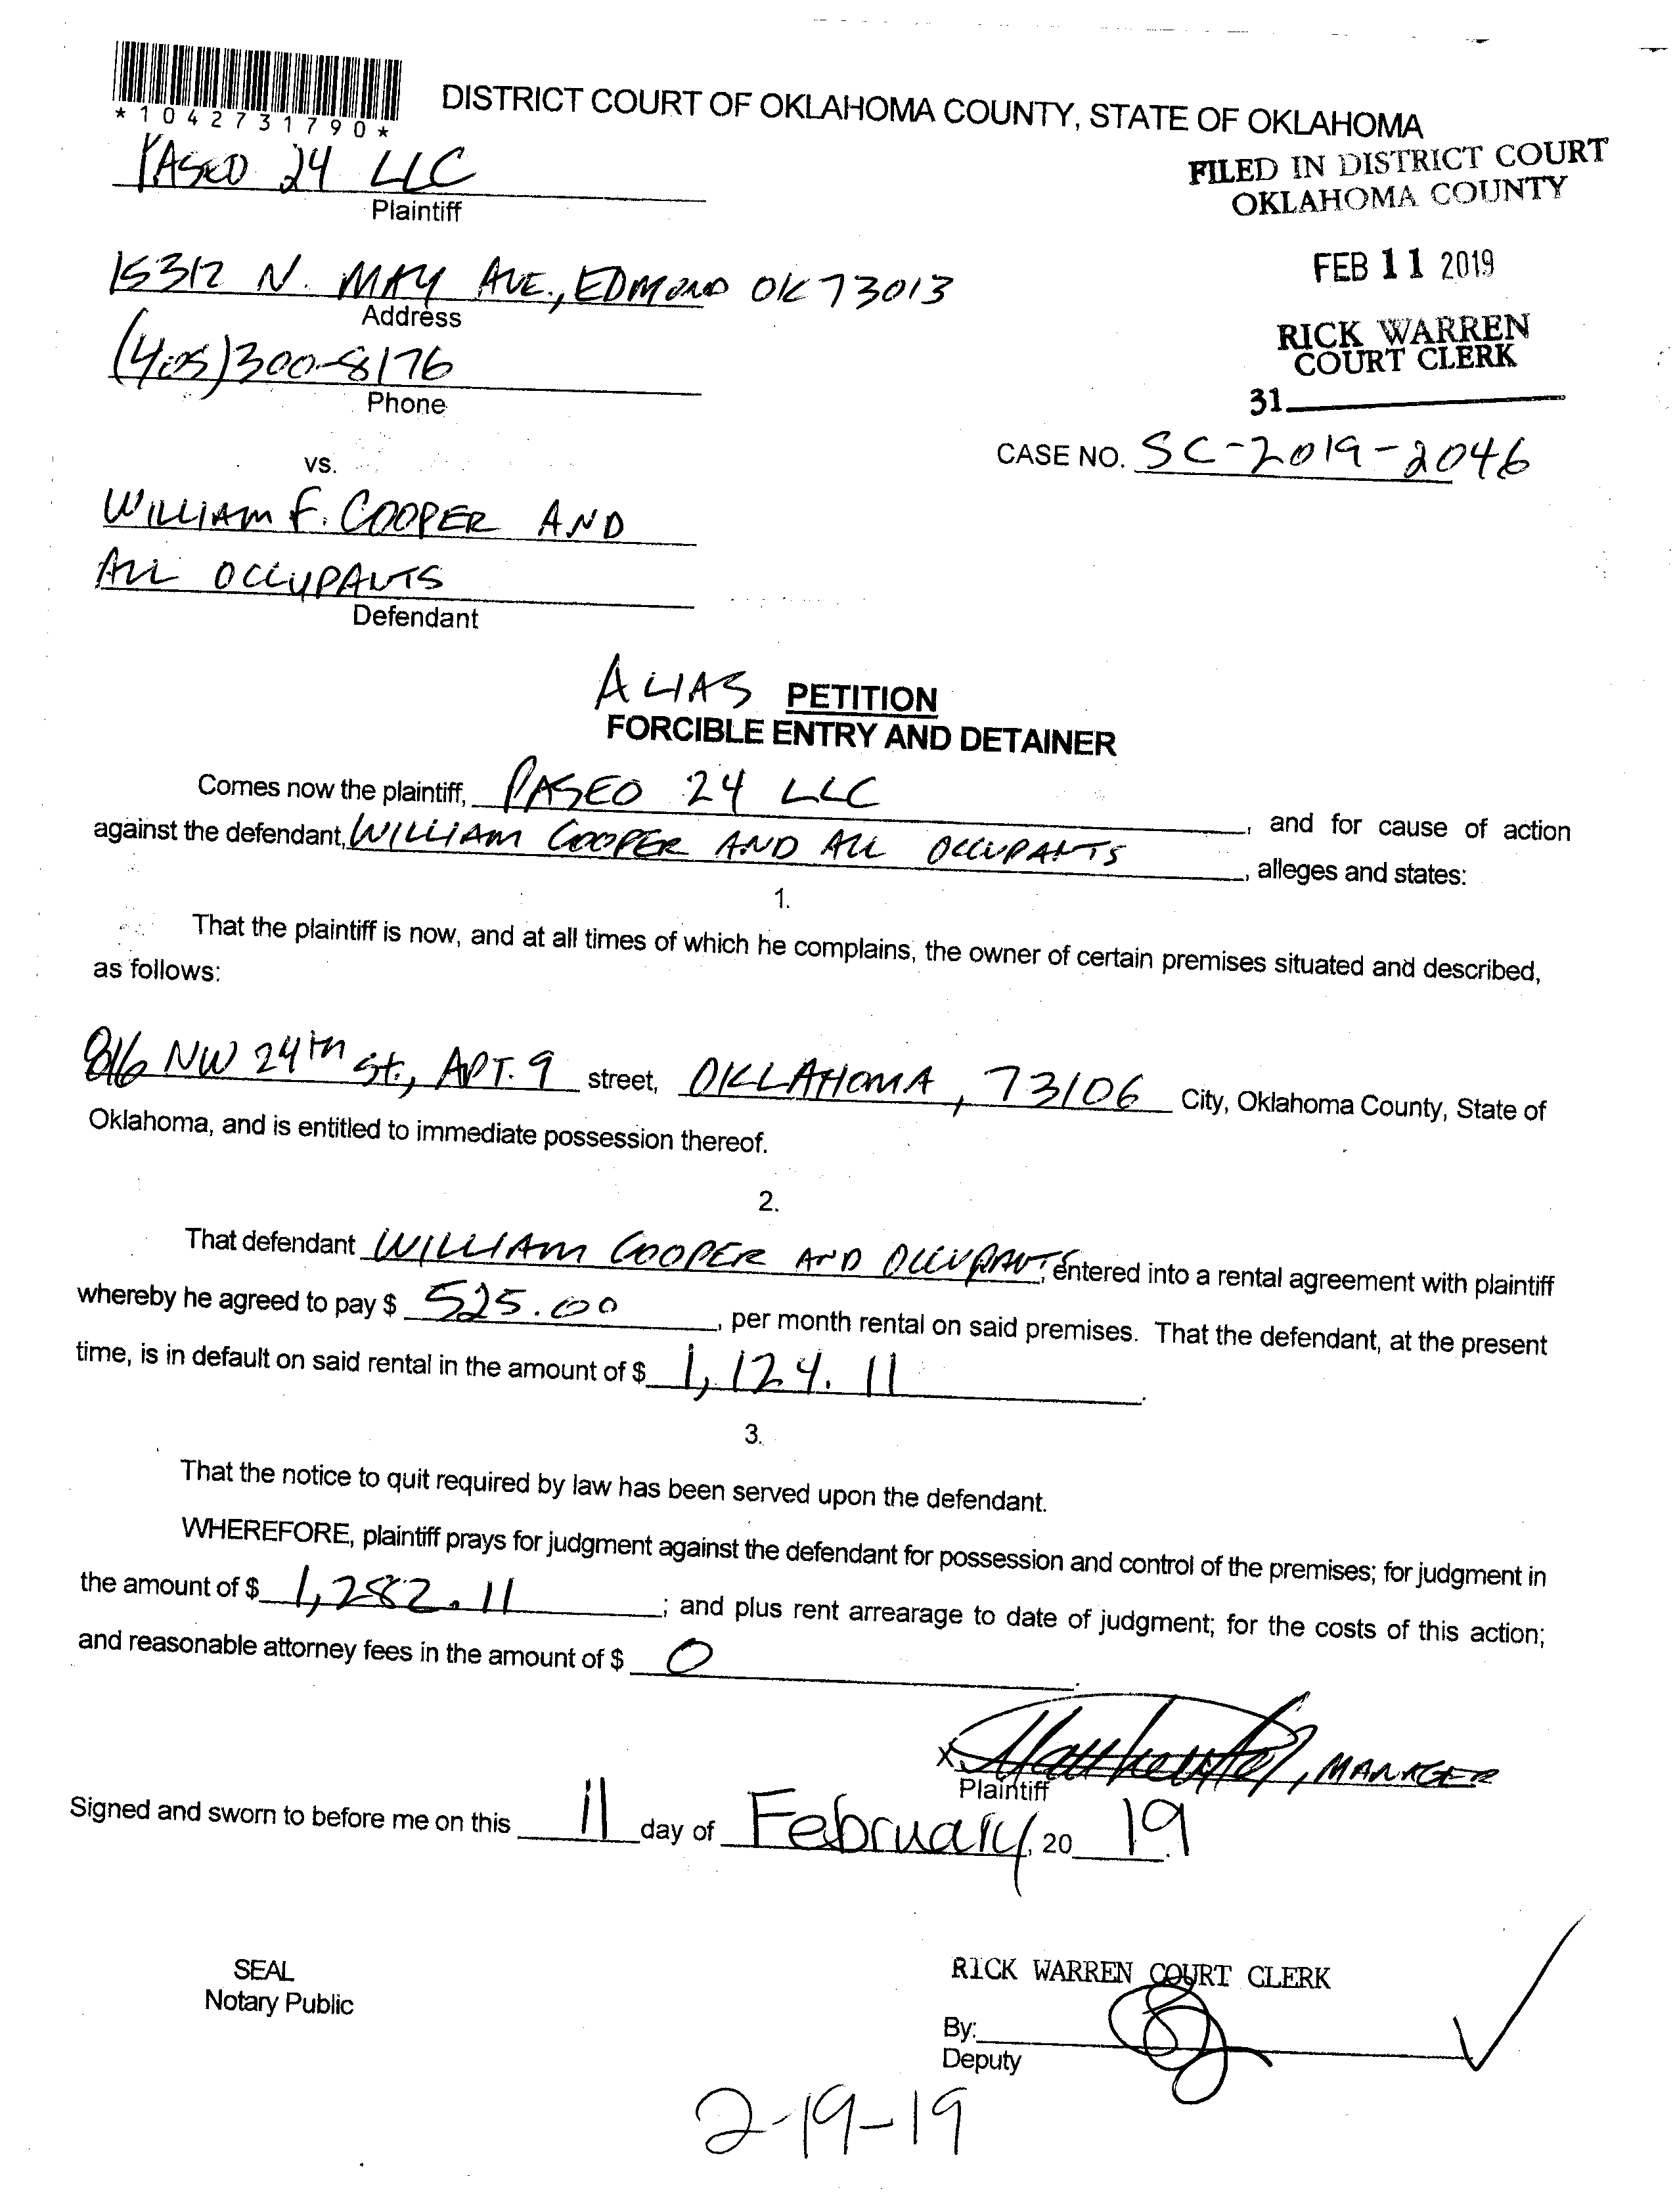 *1042731790*
DISTRICT COURT OF OKLAHOMA COUNTY, STATE OF OKLAHOMA
PASEO 24 LLC
Plaintiff
FILED IN DISTRICT COURT
OKLAHOMA COUNTY
15312 N. MAY AVE., EDMOND OK 73013
Address
FEB 11 2019
(405)300-8176
Phone
RICK WARREN
COURT CLERK
31
CASE NO. SC-2019-2046
vs.
WILLIAM F. COOPER AND
ALL OCCUPANTS
Defendant
ALIAS PETITION
FORCIBLE ENTRY AND DETAINER
Comes now the plaintiff, PASEO 24 LLC, and for cause of action
against the defendant, WILLIAM COOPER AND ALL OCCUPANTS, alleges and states:
1.
That the plaintiff is now, and at all times of which he complains, the owner of certain premises situated and described,
as follows:
816 NW 24TH St., APT. 9 street, OKLAHOMA, 73106 City, Oklahoma County, State of
Oklahoma, and is entitled to immediate possession thereof.
2.
That defendant WILLIAM COOPER AND OCCUPANTS, entered into a rental agreement with plaintiff
whereby he agreed to pay $ 525.00, per month rental on said premises. That the defendant, at the present
time, is in default on said rental in the amount of $ 1,124.11.
3.
That the notice to quit required by law has been served upon the defendant.
WHEREFORE, plaintiff prays for judgment against the defendant for possession and control of the premises; for judgment in
the amount of $ 1,282.11; and plus rent arrearage to date of judgment; for the costs of this action;
and reasonable attorney fees in the amount of $ 0.
X, MANAGER
Plaintiff
Signed and sworn to before me on this 11 day of February, 20 19.
SEAL
Notary Public
RICK WARREN COURT CLERK
By:
Deputy
2-19-19